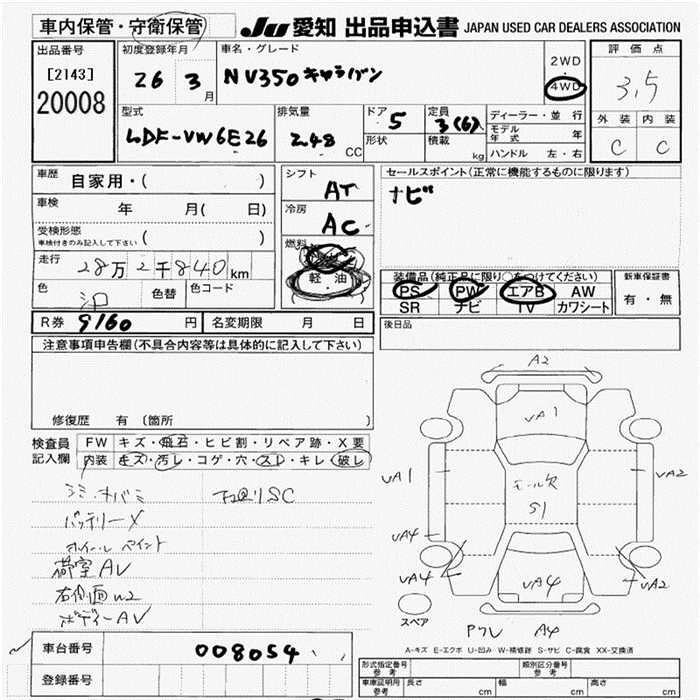 車内保管・守衛保管 JU 愛知 出品申込書 JAPAN USED CAR DEALERS ASSOCIATION
出品番号 初度登録年月 車名・グレード 評価点
[2143] 26 3月 NV350キャラバン 2WD 3.5
20008 4WD
型式 排気量 ドア 5 定員 3(6) ディーラー・並行 外装 内装
LDF-VW6E26 2.48 CC 形状 積載 kg モデル年式 年 C C
ハンドル 左・右
車歴 自家用・( ) シフト AT セールスポイント(正常に機能するものに限ります)
車検 年 月( 日) 冷房 AC ナビ
受検形態 車検付きのみ記入して下さい ( ) 燃料
走行 28万2千840km 軽・油 装備品(純正品に限り○をつけてください) 新車保証書
色 色替 色コード PS PW エアB AW 有・無
SR ナビ TV カワシート
R券 9160 円 名変期限 月 日 後日品
注意事項申告欄(不具合内容等は具体的に記入して下さい)
修復歴 有 〔箇所 〕
検査員記入欄 FW キズ・飛石・ヒビ割・リペア跡・X要
内装 キズ・汚レ・コゲ・穴・スレ・キレ・破レ
シミ・オバミ 下回りSC
バッテリーX
ホイール ペイント
荷室AV
右側面W2
ボディーAV
A2
VA1
VA1 モール欠 VA2
S1
VA4
VA4 VA4 VA2
スペア
Pクレ A4
A-キズ E-エクボ U-凹み W-補修跡 S-サビ C-腐食 XX-交換済
車台番号 008054
登録番号
型式指定番号 参考 類別区分番号 参考
車庫証明用 参考 長さ cm 幅 cm 高さ cm